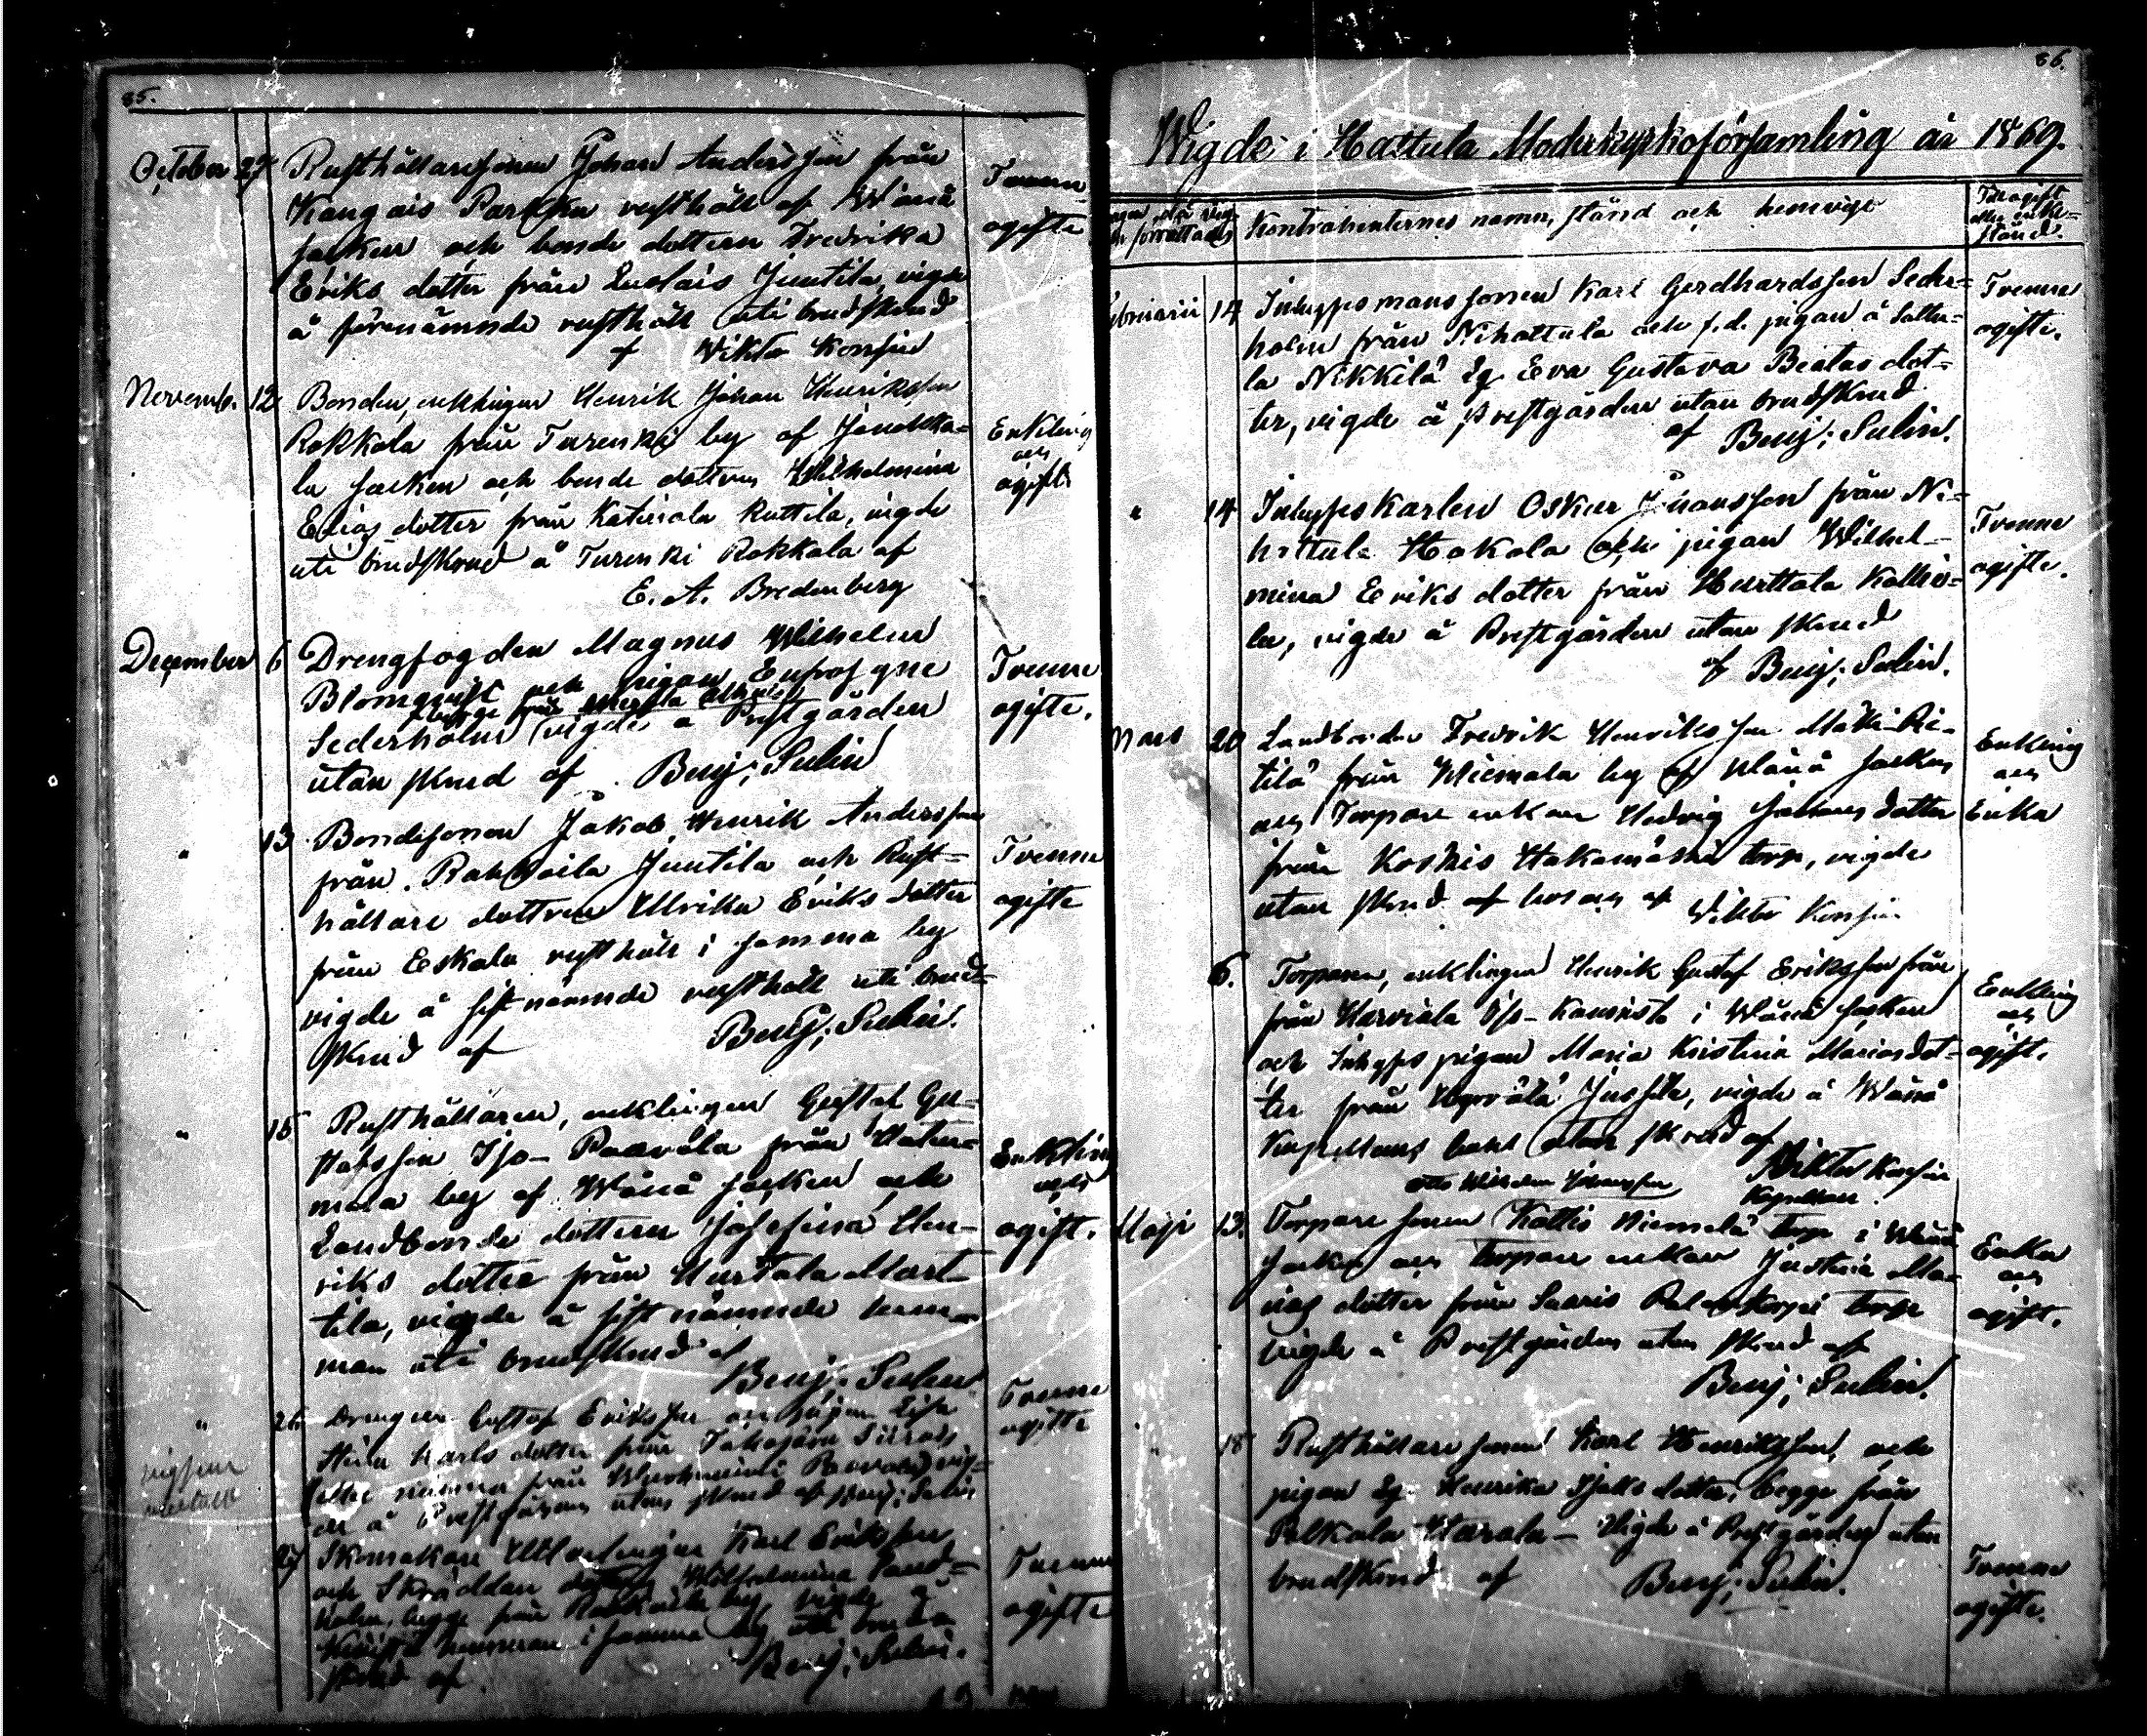 85.
October 27 Rusthållaresonen Johan Andersson från
Kangais Parikka rusthåll af Wånå
socken och bonde dottern Fredrika
Eriks dotter från Luolais Juutila, vigde
å förenämnde rusthåll uti brudskrud
af Viktor Konsin
Tvenne
ogifte
Novemb. 12 Bonden, enklingen Henrik Johan Henriksson
Rokkola från Turenki by af Janakka-
la socken och bonde dottren Wilhelmina
Elias dotter från Katinala Ruttila, vigde
uti brudskrud å Turenki Rokkala af
E. A. Bredenberg
Enkling
och
ogift.
December 6 Drengfogden Magnus Wilhelm
Blomqvist och pigan Eufrosyne
begge från
Sederholm vigde å Prestgården
utan skrud af Benj: Sulin
Tvenne
ogifte.
" 13 Bondesonen Jakob Henrik Andersson
från Rahkoila Juutila och Rust-
hållare dottren Ulrika Eriks dotter
från Eskola rusthåll i samma by
vigde å sistnämnde rusthåll uti brud-
skrud af Benj: Sulin.
Tvenne
ogifte
" 15 Rusthållaren, enklingen Gustaf Gu-
stafsson Iso-Paavola från Hatun-
mala by af Wånå socken och
Landbonde dottern Josefina Hen-
riks dotter från Hurtala Mart-
tila, vigde å sistnämnde hem-
man uti brudskrud af
Benj: Sulin
Enkling
och
ogift.
" 26 Drengen Gustaf Eriksson och pigan
Stina Karls dotter från
från
de å Prestgården utan skrud af Benj: Sulin
Tvenne
ogifte
27 Skomakare Karl Eriksson
och Skräddare Wilhelmina Sand-
holm, begge från by, vigde å
hemman i samma by uti brud-
skrud af Benj: Sulin.
Tvenne
ogifte
86.
Wigde i Hattula Moderkyrkoförsamling år 1869.
Kontrahenternes namn, stånd och hemvist
Om ogift
eller enke-
stånd
Februarii 14 Inhyses mans sonen Karl Gerdhardsson Seder-
holm från Nihattula och f.d. pigan å Sattu-
la Nikkilä Eg. Eva Gustava Beatas dot-
ter, vigde å prestgården utan brudskrud
af Benj: Sulin.
Tvenne
ogifte.
" 14 Inhyseskarlen Oskar Johansson från Ni-
hattula Hakala och pigan Wilhel-
mina Eriks dotter från Hurttala Kallio-
la, vigde å Prestgården utan skrud
af Benj: Sulin.
Tvenne
ogifte.
Mars 20 Landbonden Fredrik Henriksson Mäki-Pi-
tilä från Wiemala by af Wånå socken
och Torpare enkan Hedvig Johans dotter
från Koskis Hakamäki torp, vigde
utan skrud af Viktor Konsin
Enkling
och
Enka
6. Torparen, enklingen Henrik Gustaf Eriksson från
från Harviala Iso-Kausisto i Wånå socken
och Inhyses pigan Maria Kristina Marias dot-
ter från Jussila, vigde å Wånå
Kapellans bohl utan skrud af
Viktor Konsin
Kapellan.
Enkling
och
ogift.
Otto Wilhelm Johansson
Maji 13. Torpare sonen Kattis Niemelä torp i Wånå
socken och Torpare enkan Justina Ma-
rias dotter från Saaris Palonkorpi torp
vigde å Prestgården utan skrud af
Benj: Sulin.
Enka
och
ogift.
" 18 Rusthållare sonen Karl Henriksson och
pigan Eg. Henrika Isaks dotter, begge från
Pelkola Uurala - Vigde å Prestgården utan
brudskrud af Benj: Sulin.
Tvenne
ogifte.